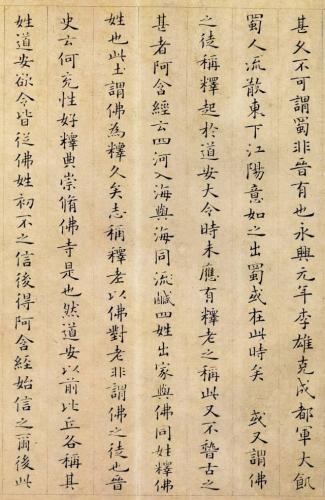 甚久不可謂蜀非晉有也永興元年李雄克成都軍大飢
蜀人流散東下江陽意如之出蜀或在此時矣　或又謂佛
之徒稱釋起於道安大令時未應有釋老之稱此又不暬古之
甚者阿含經云四河入海與海同流鹹四姓出家與佛同姓釋佛
姓也此土謂佛為釋久矣志稱釋老以佛對老非謂佛之徒也晉
史云何充性好釋典崇脩佛寺是也然道安以前比丘各稱其
姓道安欲令皆從佛姓初不之信後得阿含經始信之爾後此